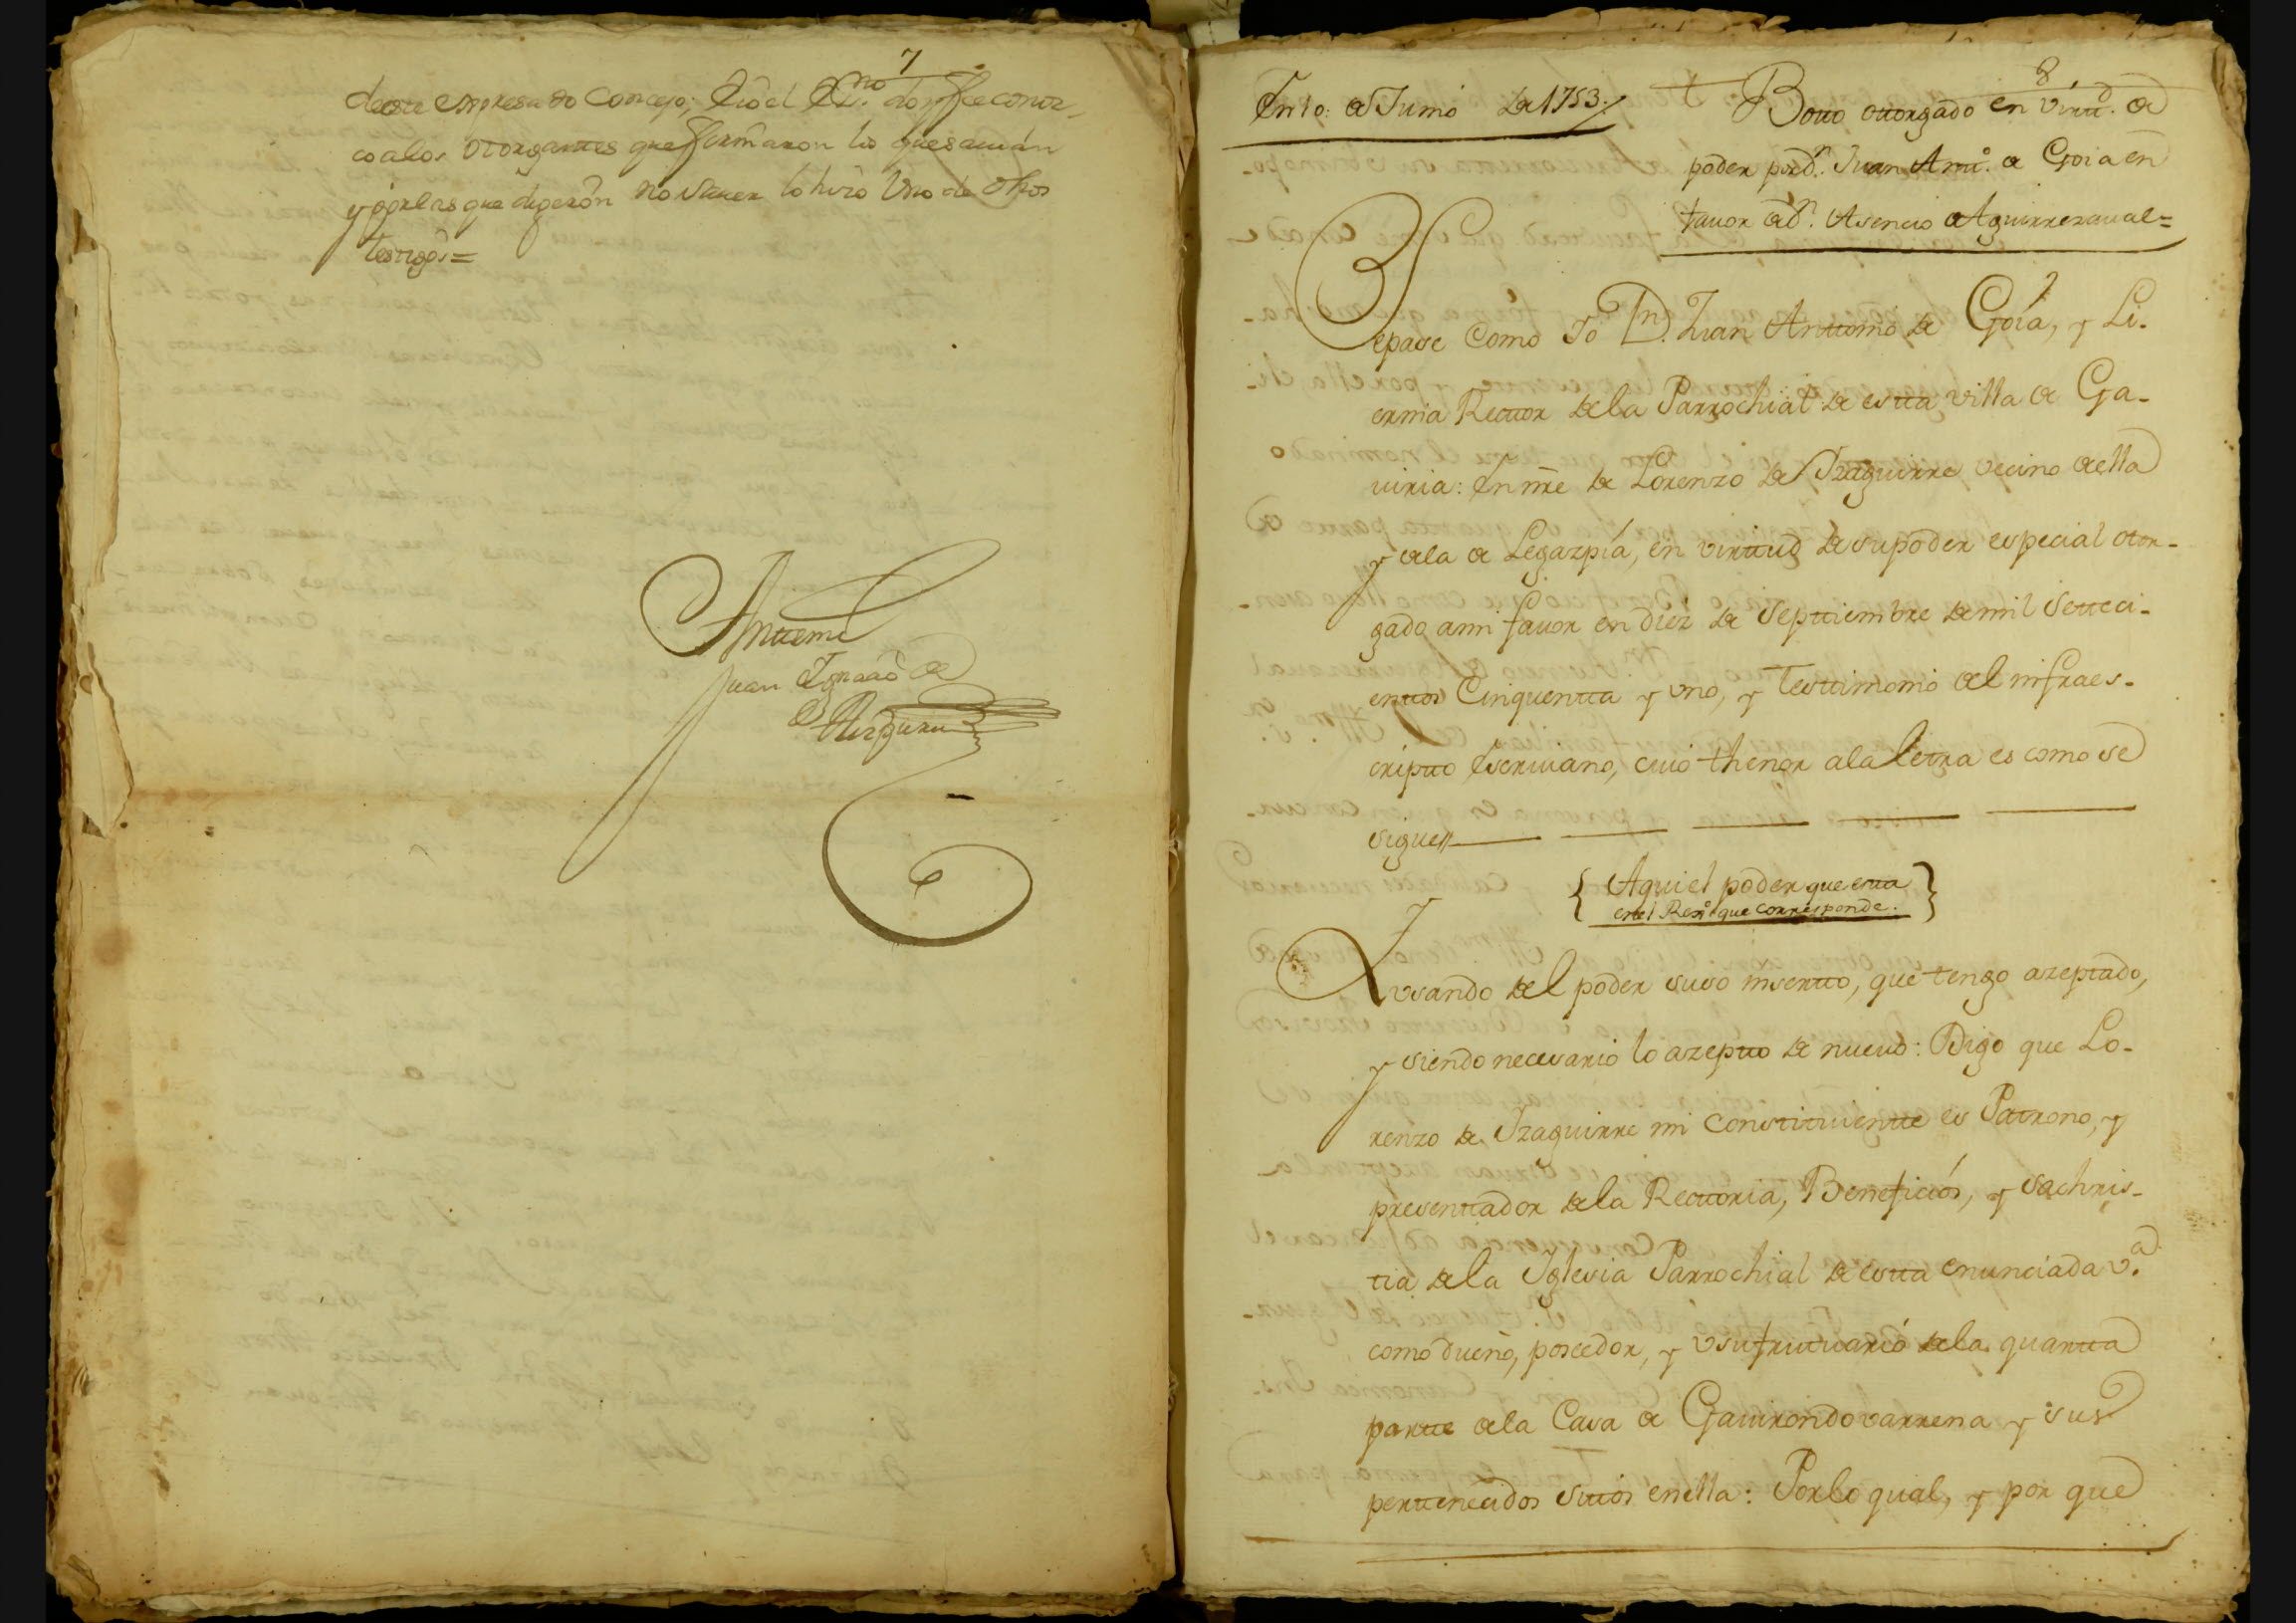 7
deeste expresado Concejo; Eió el SS.no doy ffeeconoz-
co alos otorgantes que ffirmaron los que sauian
y porlas que digeron no Sauer lo hizo Uno de dhos
testigos=
Anttemi
Juan Ygnaçio de
8
En 10: de Junio de 1753
Botto ottorgado en virtt.d de
poder por D.n Juan Antt.o de Goia en
fauor de D.n Asencio de Aguirrezaual=
Sepase Como Yo D.n Juan Anttonio de Goia, y Li-
ernia Recttor dela Parrochial de estta villa de Ga-
uiria: En nre de Lorenzo de Yzaguirre vecino de ella
y dela de Legazpia, en virttud de su poder especial otor-
gado ami fauor en diez de Septtiembre de mil setteci-
enttos Cinquentta y uno, y Testtimonio del infraes-
criptto Escriuano, cuio thenor ala letra es como se
sigue//
{ Aqui el poder que esta }
en el Rex.o que corresponde.
Y usando del poder suso insertto, que tengo azeptado,
y siendo necesario lo azeptto de nueuo: Digo que Lo-
renzo de Yzaguirre mi Constituientte es Patrono, y
presenttador dela Recttoria, Beneficios, y sachris-
tia dela Yglesia Parrochial de estta enunciada v.a
como dueño, poseedor, y Usufrutuario dela quartta
partte dela Casa de Gauirondosarrena y sus
perttenecidos sittos enella: Porlo qual, y por que